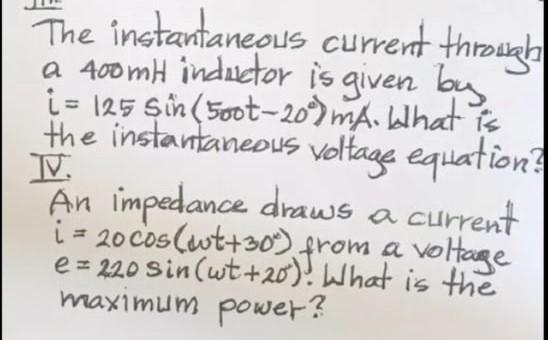 The instantaneous current through
a 400mH inductor is given by
i = 125 Sin(500t-20°)mA. What is
the instantaneous voltage equation?
IV.
An impedance draws a current
i = 20 cos(ωt+30°) from a voltage
e = 220 sin(ωt+20°). What is the
maximum power?